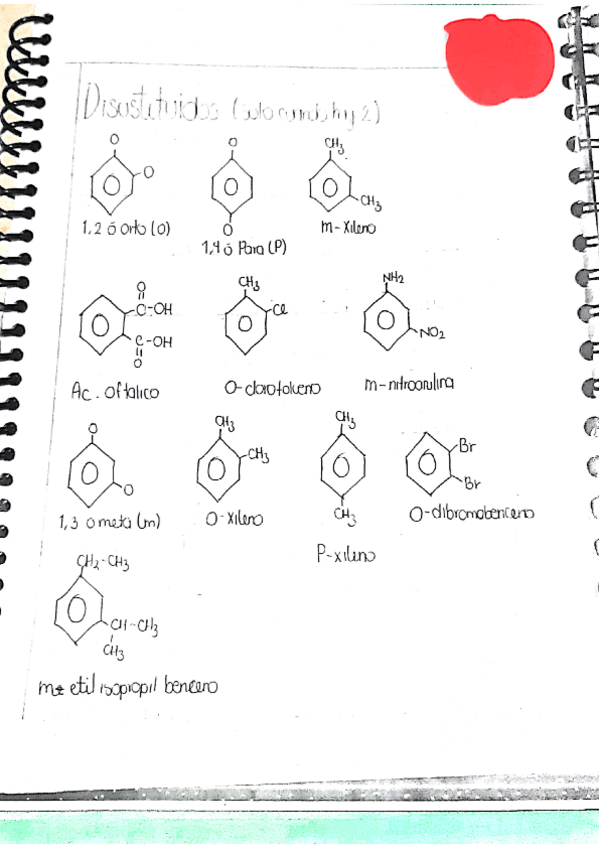 Disustituidos (solo numéros hy 2)
O
O
1,2 ó orto (o)
O
O
1,4 ó Para (P)
CH3
CH3
m-Xileno
O
C-OH
C-OH
O
Ac. oftalico
CH3
Cl
O-clorotolueno
NH2
NO2
m-nitroanilina
O
O
1,3 o meta (m)
CH3
CH3
O-xileno
CH3
CH3
P-xileno
Br
Br
O-dibromobenceno
CH2-CH3
CH-CH3
CH3
m- etil isopropil benceno